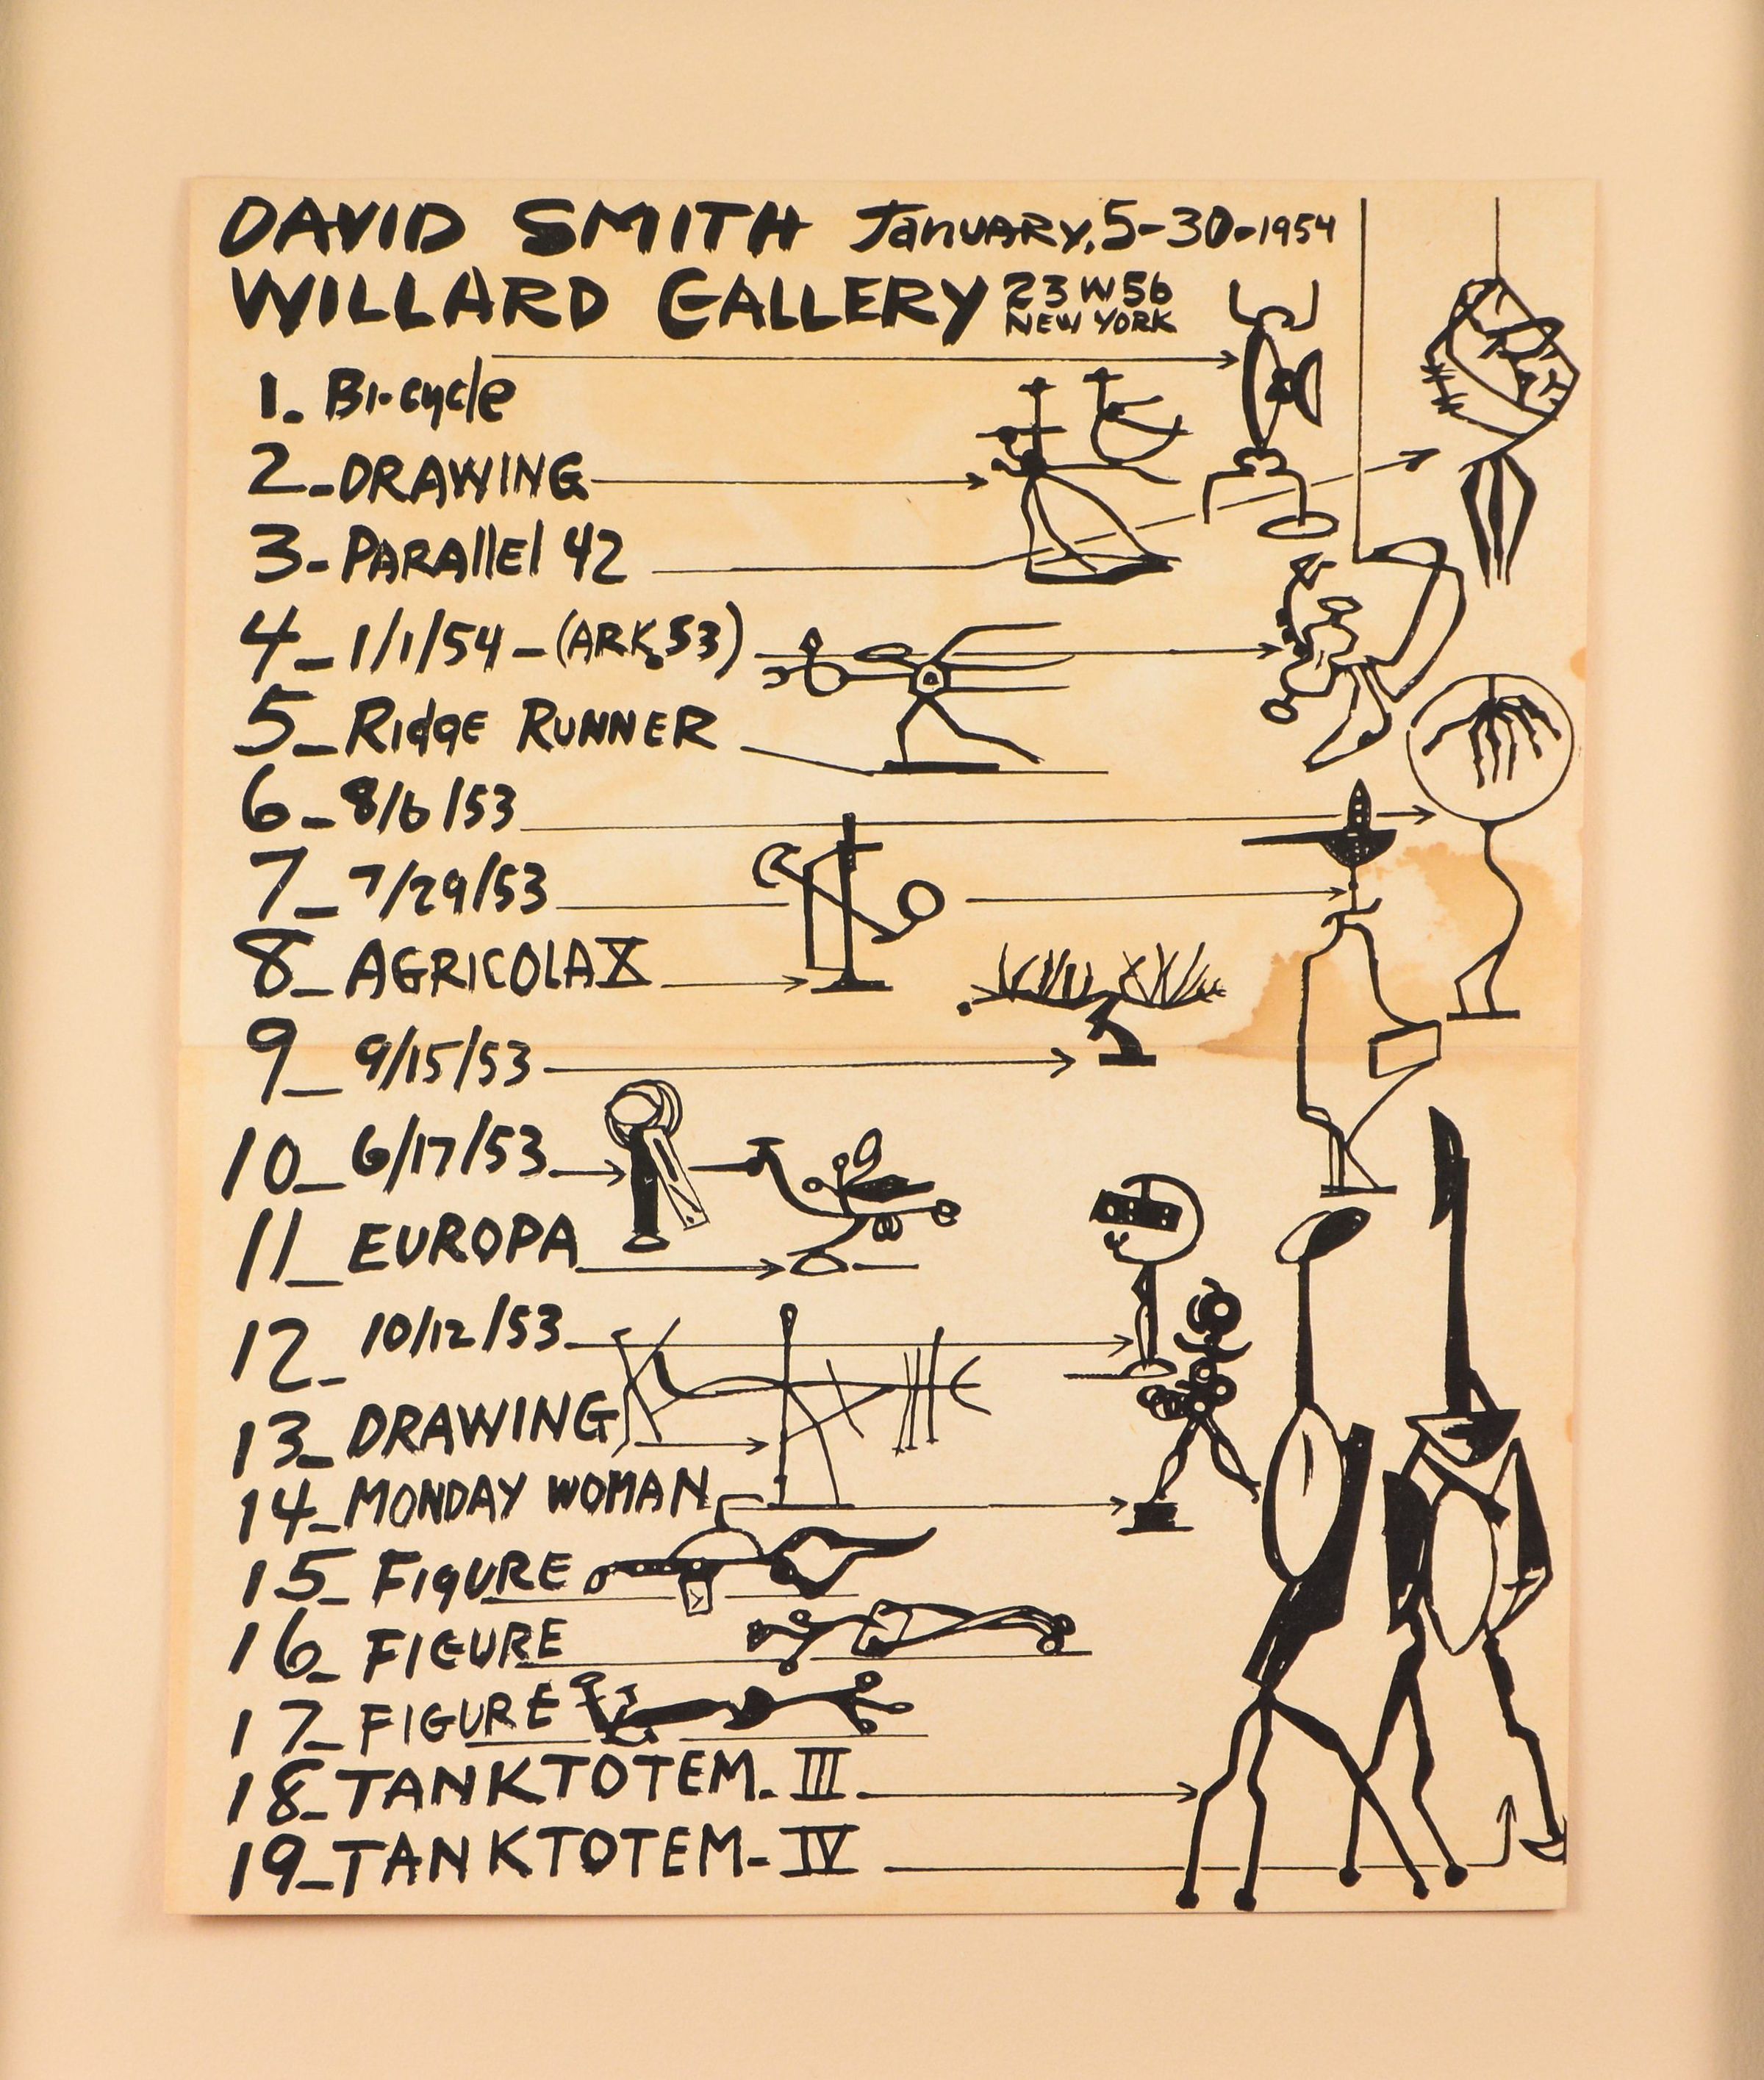 DAVID SMITH January, 5-30-1954
WILLARD GALLERY 23 W 56
NEW YORK
1. Bi-cycle
2_DRAWING
3- PARAllEl 42
4_1/1/54_(ARK 53)
5_RIdgE RUNNER
6_8/6/53
7_7/29/53
8_AGRICOLA X
9_9/15/53
10_6/17/53
11_EUROPA
12_10/12/53
13_DRAWING
14_MONDAY WOMAN
15_FIgURE
16_FIGURE
17_FIGURE
18_TANKTOTEM_III
19_TANKTOTEM_IV